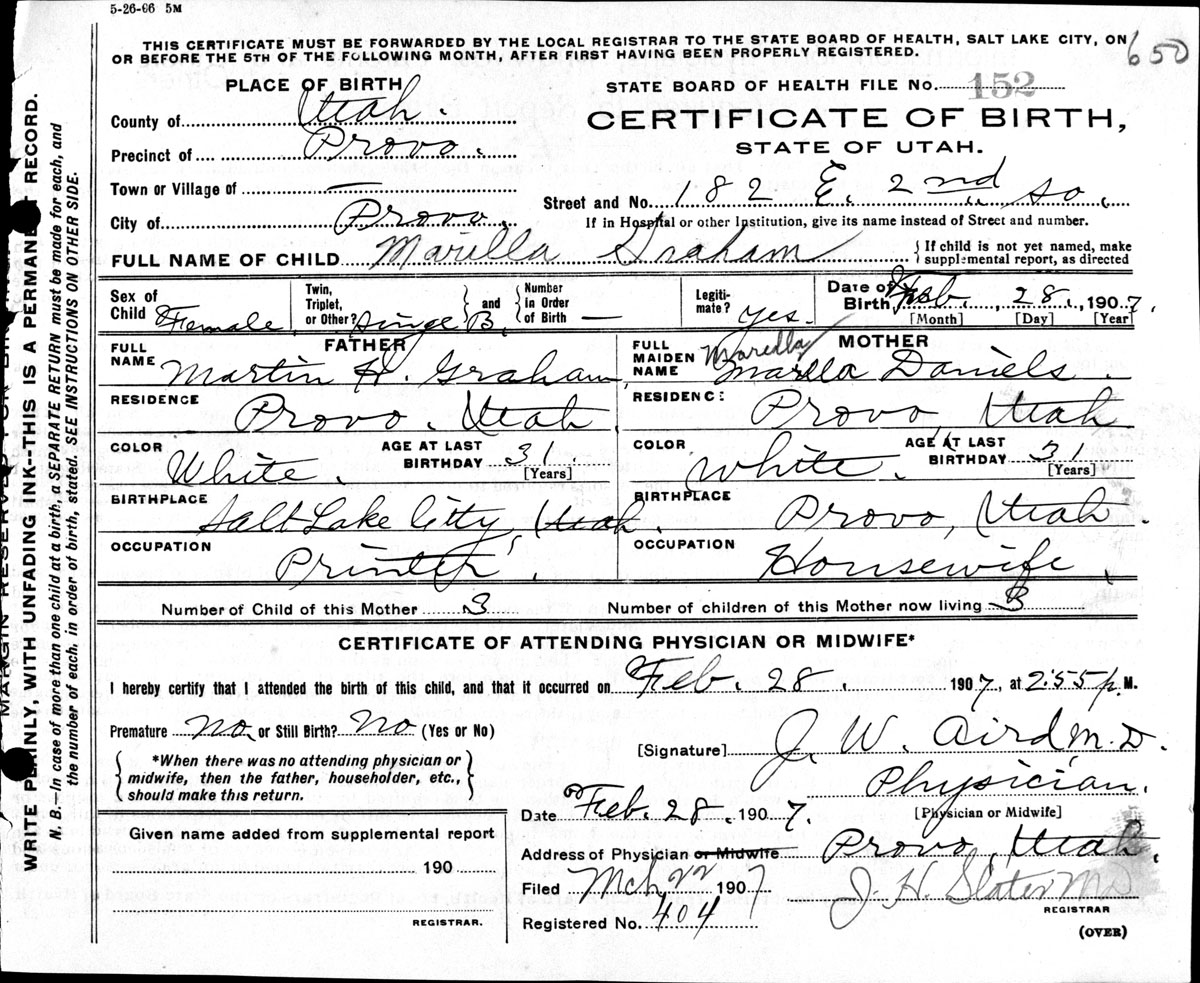 5-26-06 5M
THIS CERTIFICATE MUST BE FORWARDED BY THE LOCAL REGISTRAR TO THE STATE BOARD OF HEALTH, SALT LAKE CITY, ON
OR BEFORE THE 5TH OF THE FOLLOWING MONTH, AFTER FIRST HAVING BEEN PROPERLY REGISTERED.
650
PLACE OF BIRTH
STATE BOARD OF HEALTH FILE No. 152
County of Utah.
CERTIFICATE OF BIRTH,
STATE OF UTAH.
Precinct of Provo.
Town or Village of —
Street and No. 182 E. 2nd So.
City of Provo.
If in Hospital or other Institution, give its name instead of Street and number.
FULL NAME OF CHILD Marilla Graham
{If child is not yet named, make
supplemental report, as directed
Sex of Child Female
Twin, Triplet, or Other? Single B. and Number in Order of Birth —
Legitimate? Yes.
Date of Birth Feb. 28., 1907.
[Month] [Day] [Year]
FATHER
FULL NAME Martin H. Graham
RESIDENCE Provo. Utah
COLOR White. AGE AT LAST BIRTHDAY 31. [Years]
BIRTHPLACE Salt Lake Citty, Utah.
OCCUPATION Printer.
MOTHER
FULL MAIDEN NAME Marilla Daniels
RESIDENCE Provo, Utah
COLOR White. AGE AT LAST BIRTHDAY 31 [Years]
BIRTHPLACE Provo, Utah.
OCCUPATION Housewife.
Number of Child of this Mother 3 Number of children of this Mother now living 3
CERTIFICATE OF ATTENDING PHYSICIAN OR MIDWIFE*
I hereby certify that I attended the birth of this child, and that it occurred on Feb. 28. 1907, at 2:55 p. M.
Premature No. or Still Birth? No (Yes or No)
[Signature] J. W. Aird M.D.
{*When there was no attending physician or
midwife, then the father, householder, etc.,
should make this return.}
Physician.
[Physician or Midwife]
Date Feb. 28. 1907.
Given name added from supplemental report
190
REGISTRAR.
Address of Physician or Midwife Provo, Utah.
Filed Mch 22 1907
J. H. Slater MD
REGISTRAR
Registered No. 404
(OVER)
WRITE PLAINLY, WITH UNFADING INK--THIS IS A PERMANENT RECORD.
N. B.—In case of more than one child at a birth, a SEPARATE RETURN must be made for each, and
the number of each, in order of birth, stated. SEE INSTRUCTIONS ON OTHER SIDE.